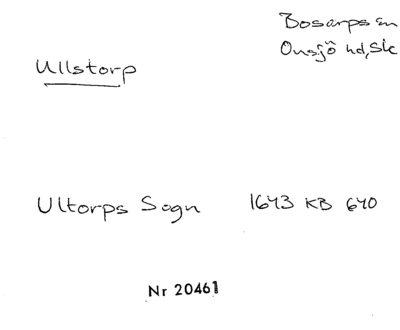 Bosarps sn
Onsjö hd, Sk
Ullstorp
Ultorps Sogn 1643 KB 640
Nr 20461